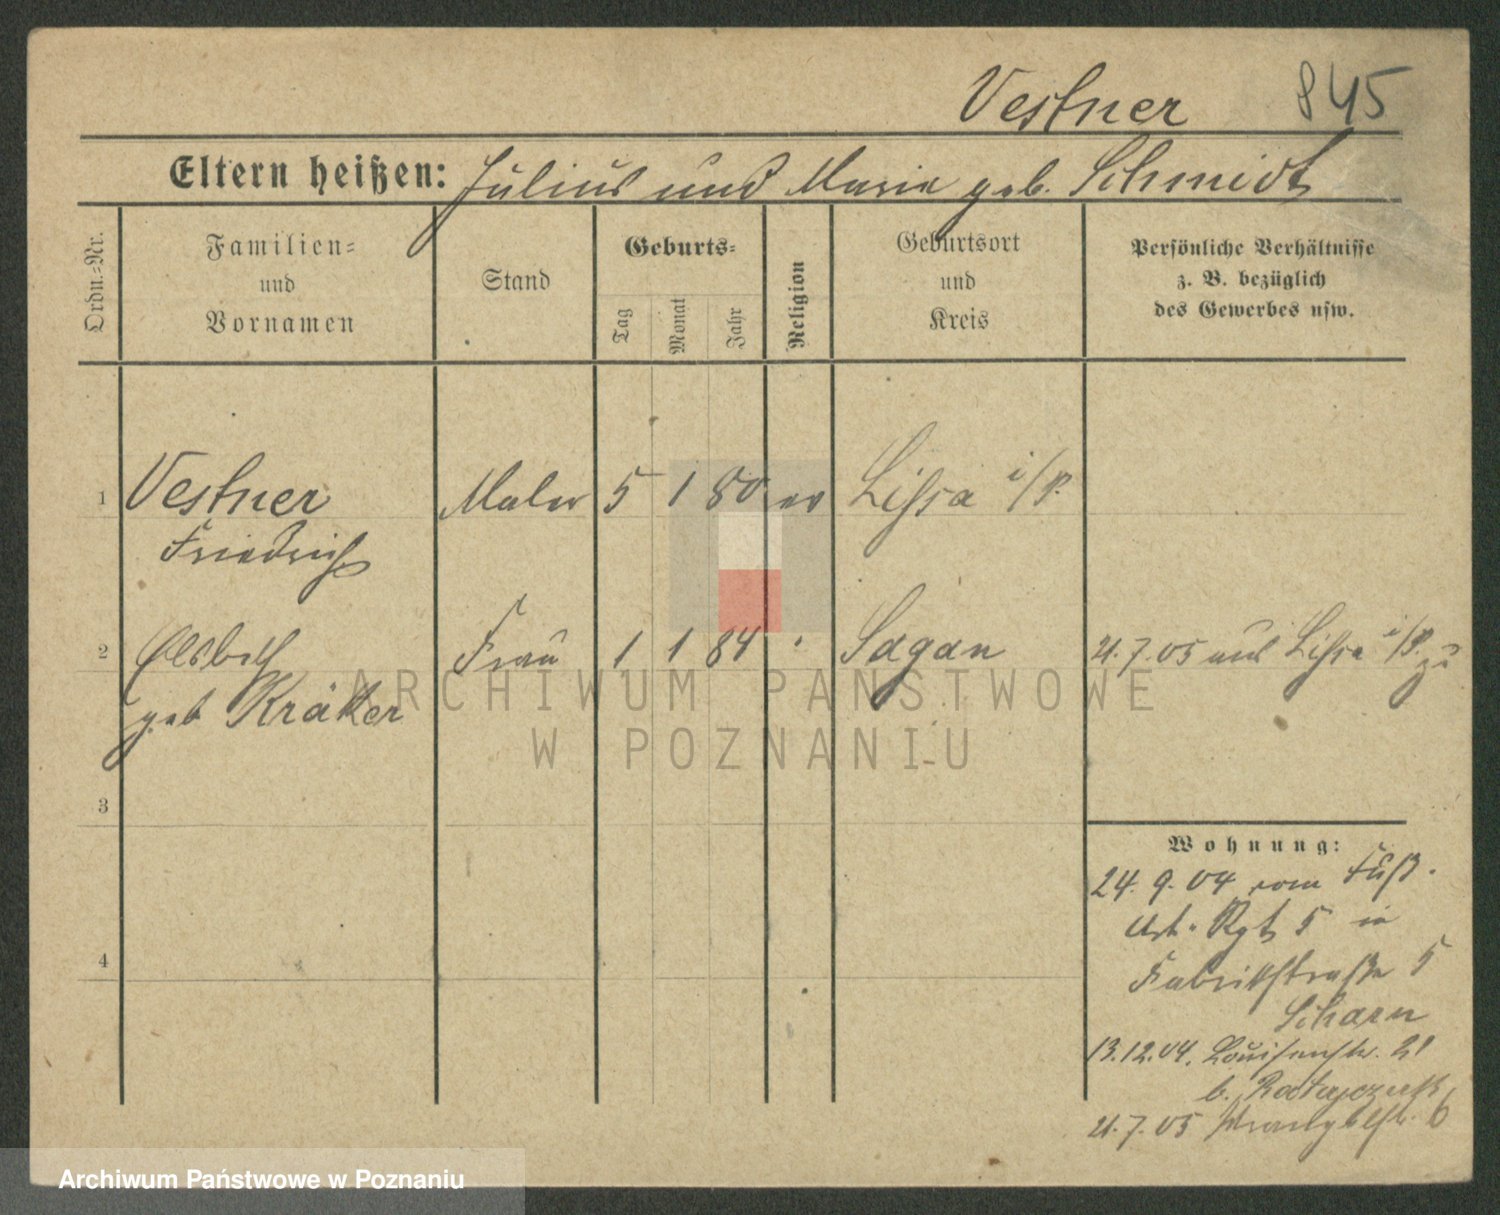 Vestner 845
Eltern heißen: Julius und Marie geb. Schmidt
Ordn.-Nr.
Familien- und Vornamen
Stand
Geburts-
Tag
Monat
Jahr
Religion
Geburtsort und Kreis
Persönliche Verhältnisse
z. B. bezüglich
des Gewerbes usw.
1 Vestner Maler 5 1 80 ev Lissa i/P.
Friedrich
2 Elsbeth Frau 1 1 84 " Sagan 21.7.05 aus Lissa i/P. zu
geb Kräker
3
4
Wohnung:
24. 9. 04 vom Fuß.
Art. Rgt 5 in
Fabrikstraße 5
Scharn
13.12.04. Louisenstr. 21
b. Ratajczak
21.7.05 6
ARCHIWUM PAŃSTWOWE
W POZNANIU
Archiwum Państwowe w Poznaniu